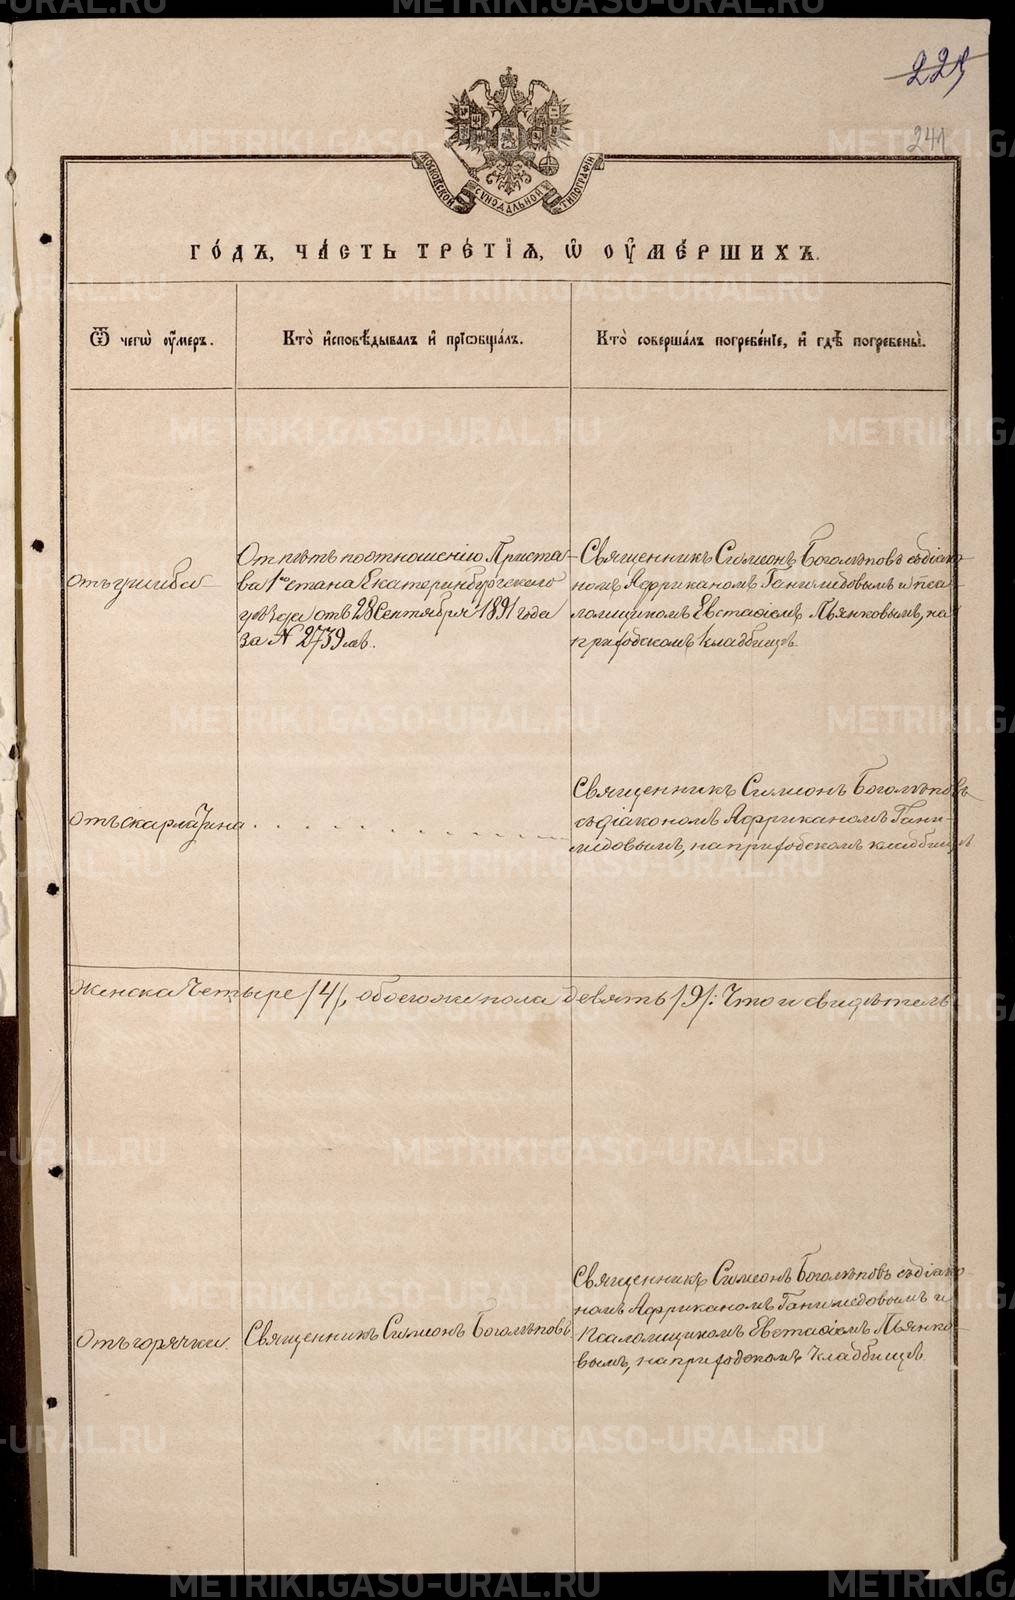 METRIKI.GASO-URAL.RU
225
241
МОСКОВСКОЙ СѴНОДАЛЬНОЙ ТИПОГРАФІИ
ГО́ДЪ, ЧА́СТЬ ТРЕ́ТІѦ, Ѡ҆ ОУ҆МЕ́РШИХЪ.
Ѿ чегѡ̀ оу҆́меръ.
Кто̀ и҆сповѣ́дывалъ и҆ прїѡбща́лъ.
Кто̀ соверша́лъ погребе́нїе, и҆ гдѣ̀ погребены̀.
Отпѣтъ по отношенію Приста-
ва 1го стана Екатеринбургскаго
уѣзда отъ 28 Сентября 1891 года
за № 2739мъ.
Священникъ Симеонъ Боголѣповъ съ діако-
номъ Африканомъ Ганимедовымъ и Пса-
ломщикомъ Евстаѳіемъ Пьянковымъ, на
приходскомъ кладбищѣ.
отъ скарлатина
Священникъ Симеонъ Боголѣповъ
съ діакономъ Африканомъ Гани-
медовымъ, на приходскомъ кладбищѣ
Женска четыре /4/, обоего же пола девять /9/: Что и свидѣтель-
Священникъ Симеонъ Боголѣповъ съ діако-
номъ Африканомъ Ганимедовымъ и
отъ горячки.
Священникъ Симеонъ Боголѣповъ
Псаломщикомъ Евстаѳіемъ Пьянко-
вымъ, на приходскомъ кладбищѣ.